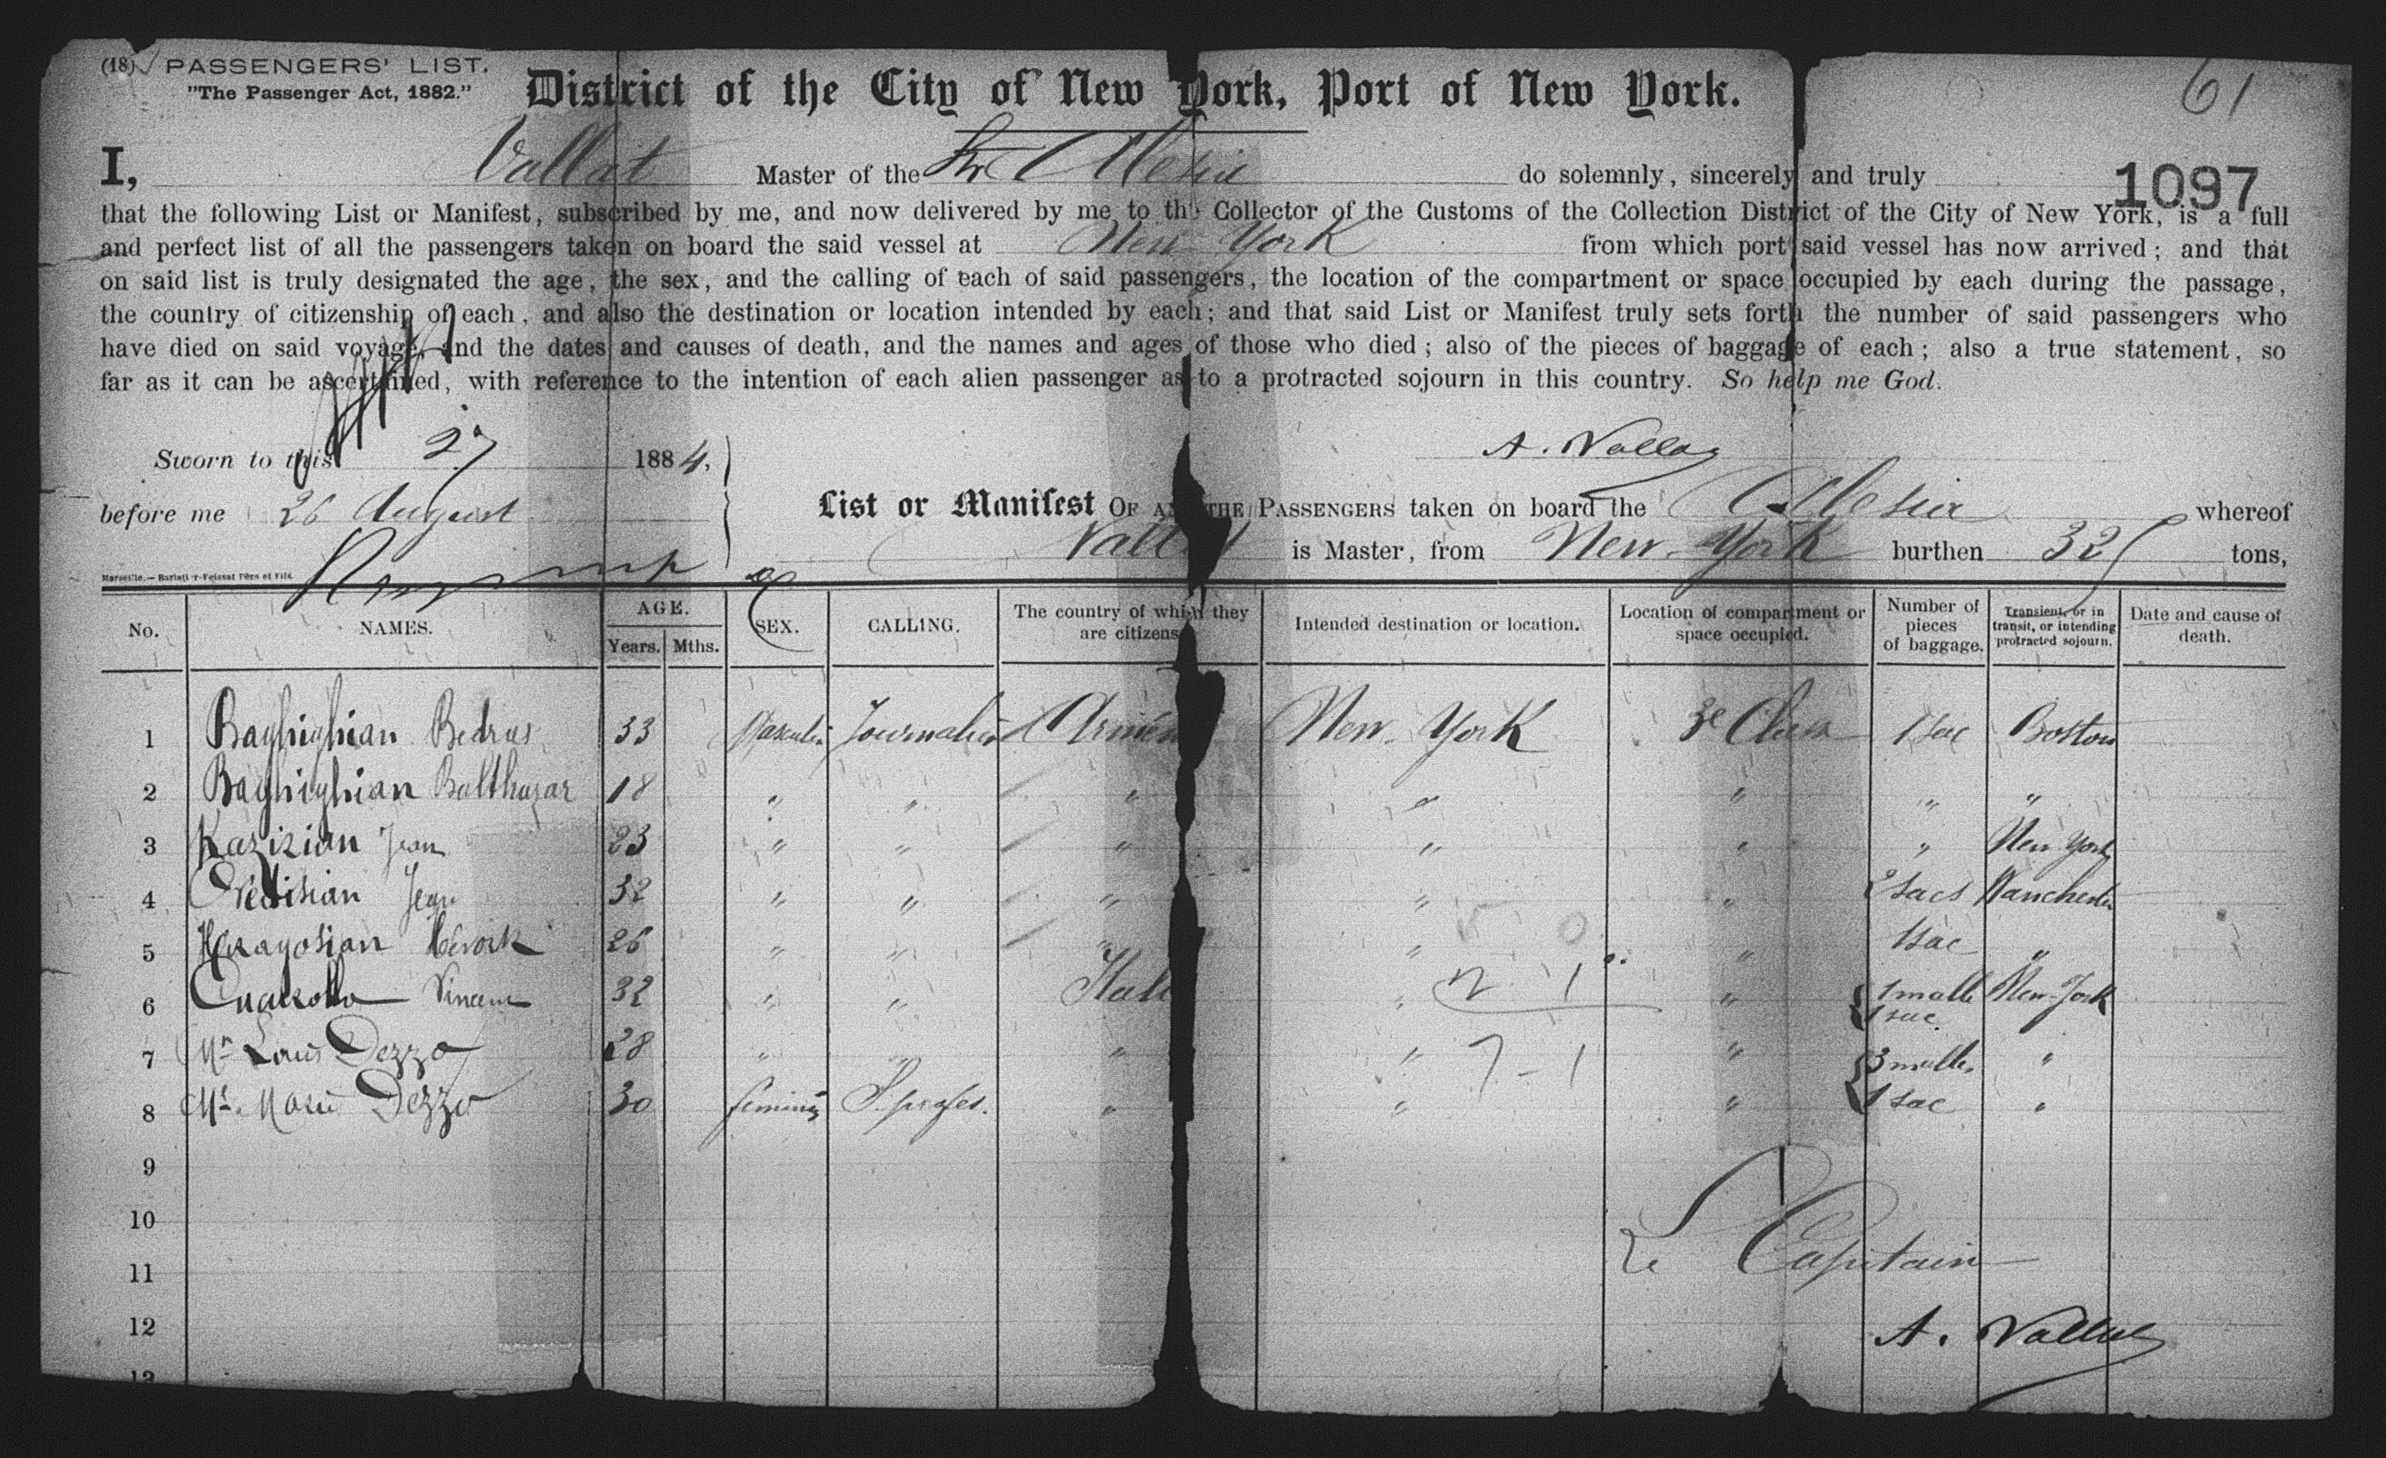 (18) PASSENGERS' LIST.
"The Passenger Act, 1882."
District of the City of New York, Port of New York.
61
1097
I, Vallat Master of the Str Alesia do solemnly, sincerely and truly
that the following List or Manifest, subscribed by me, and now delivered by me to the Collector of the Customs of the Collection District of the City of New York, is a full
and perfect list of all the passengers taken on board the said vessel at New York from which port said vessel has now arrived; and that
on said list is truly designated the age, the sex, and the calling of each of said passengers, the location of the compartment or space occupied by each during the passage,
the country of citizenship of each, and also the destination or location intended by each; and that said List or Manifest truly sets forth the number of said passengers who
have died on said voyage, and the dates and causes of death, and the names and ages of those who died; also of the pieces of baggage of each; also a true statement, so
far as it can be ascertained, with reference to the intention of each alien passenger as to a protracted sojourn in this country. So help me God.
Sworn to this 27 1884,
A. Vallat
before me 26 August
List or Manifest OF THE PASSENGERS taken on board the Alesia whereof
Vallat is Master, from New York burthen tons,
No. NAMES. AGE. Years. Mths. SEX. CALLING. The country of which they are citizens Intended destination or location. Location of compartment or space occupied. Number of pieces of baggage. Transient, or in transit, or intending protracted sojourn. Date and cause of death.
1 Baghighian Bedros 33 Masculin Journalier Armén New York 3e Class 1 sac Boston
2 Baghighian Balthazar 18 " " " " " " "
3 Kazizian Jean 23 " " " " " " New York
4 Jean 32 " " " " " 2 sacs Manchester
5 26 " " " " " 1 sac "
6 Vincent 32 " " Itali " " 1 malle 1 sac New-York
7 Mr Louis Dezzo 28 " " " " " 3 malles "
8 Me. Marie Dezzo 30 feminin S. profes. " " " 1 sac "
9
10
11
12
13
2 1
7 - 1
Le Capitain
A. Vallat